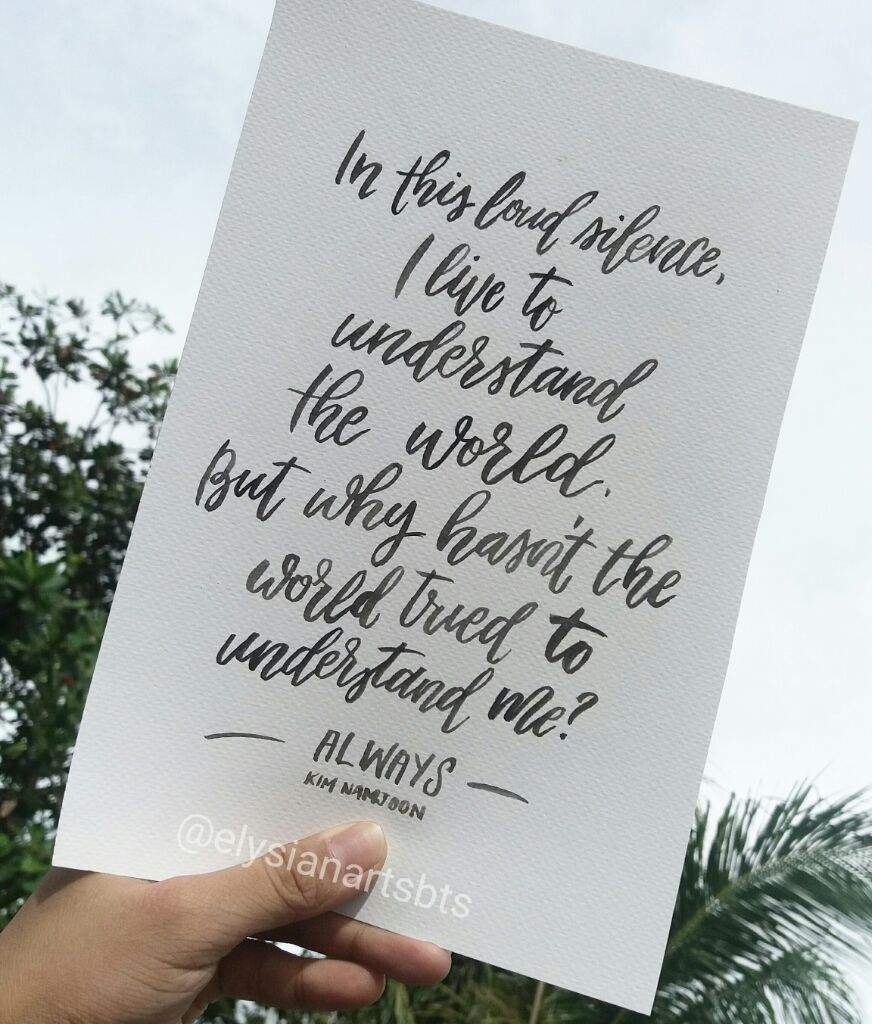 In this loud silence,
I live to
understand
the world.
But why hasn't the
world tried to
understand me?
— ALWAYS —
KIM NAMJOON
@elysianartsbts